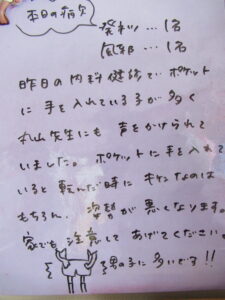 本日の病欠
発熱…1名
風邪…1名
昨日の内科健診で、ポケット
に手を入れている子が多く
先生にも声をかけられて
いました。ポケットに手を入れて
いると転んだ時にキケンなのは
もちろん、姿勢が悪くなります。
家でも注意してあげてください。
男の子に多いです!!